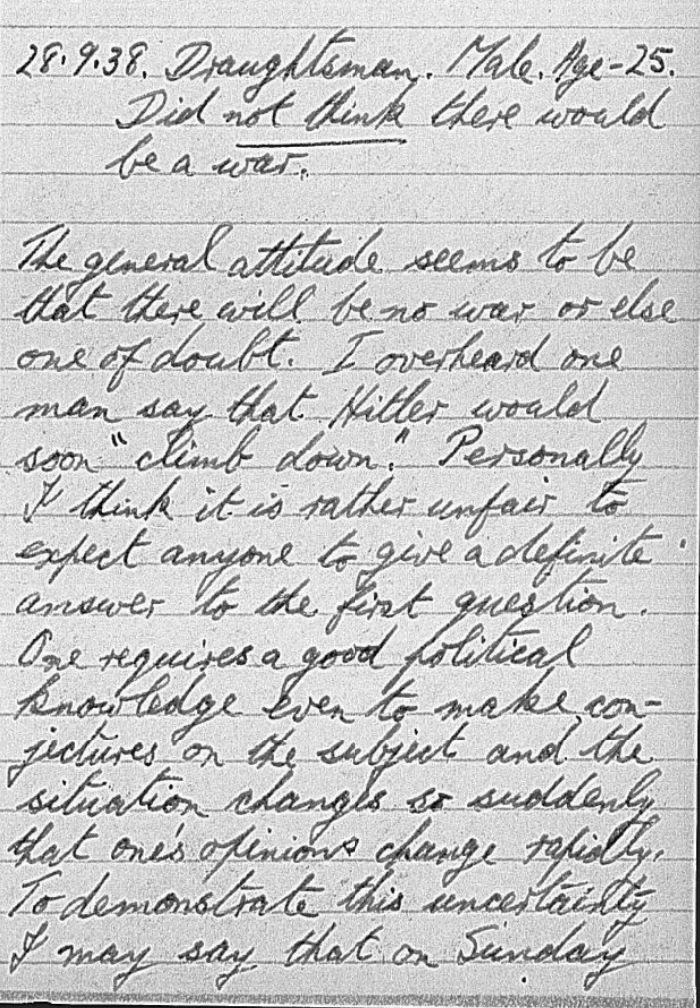 28.9.38. Draughtsman. Male. Age-25.
Did not think there would
be a war.
The general attitude seems to be
that there will be no war or else
one of doubt. I overheard one
man say that Hitler would
soon "climb down." Personally
I think it is rather unfair to
expect anyone to give a definite
answer to the first question.
One requires a good political
knowledge even to make con-
jectures on the subject and the
situation changes so suddenly
that one's opinions change rapidly.
To demonstrate this uncertainty
I may say that on Sunday